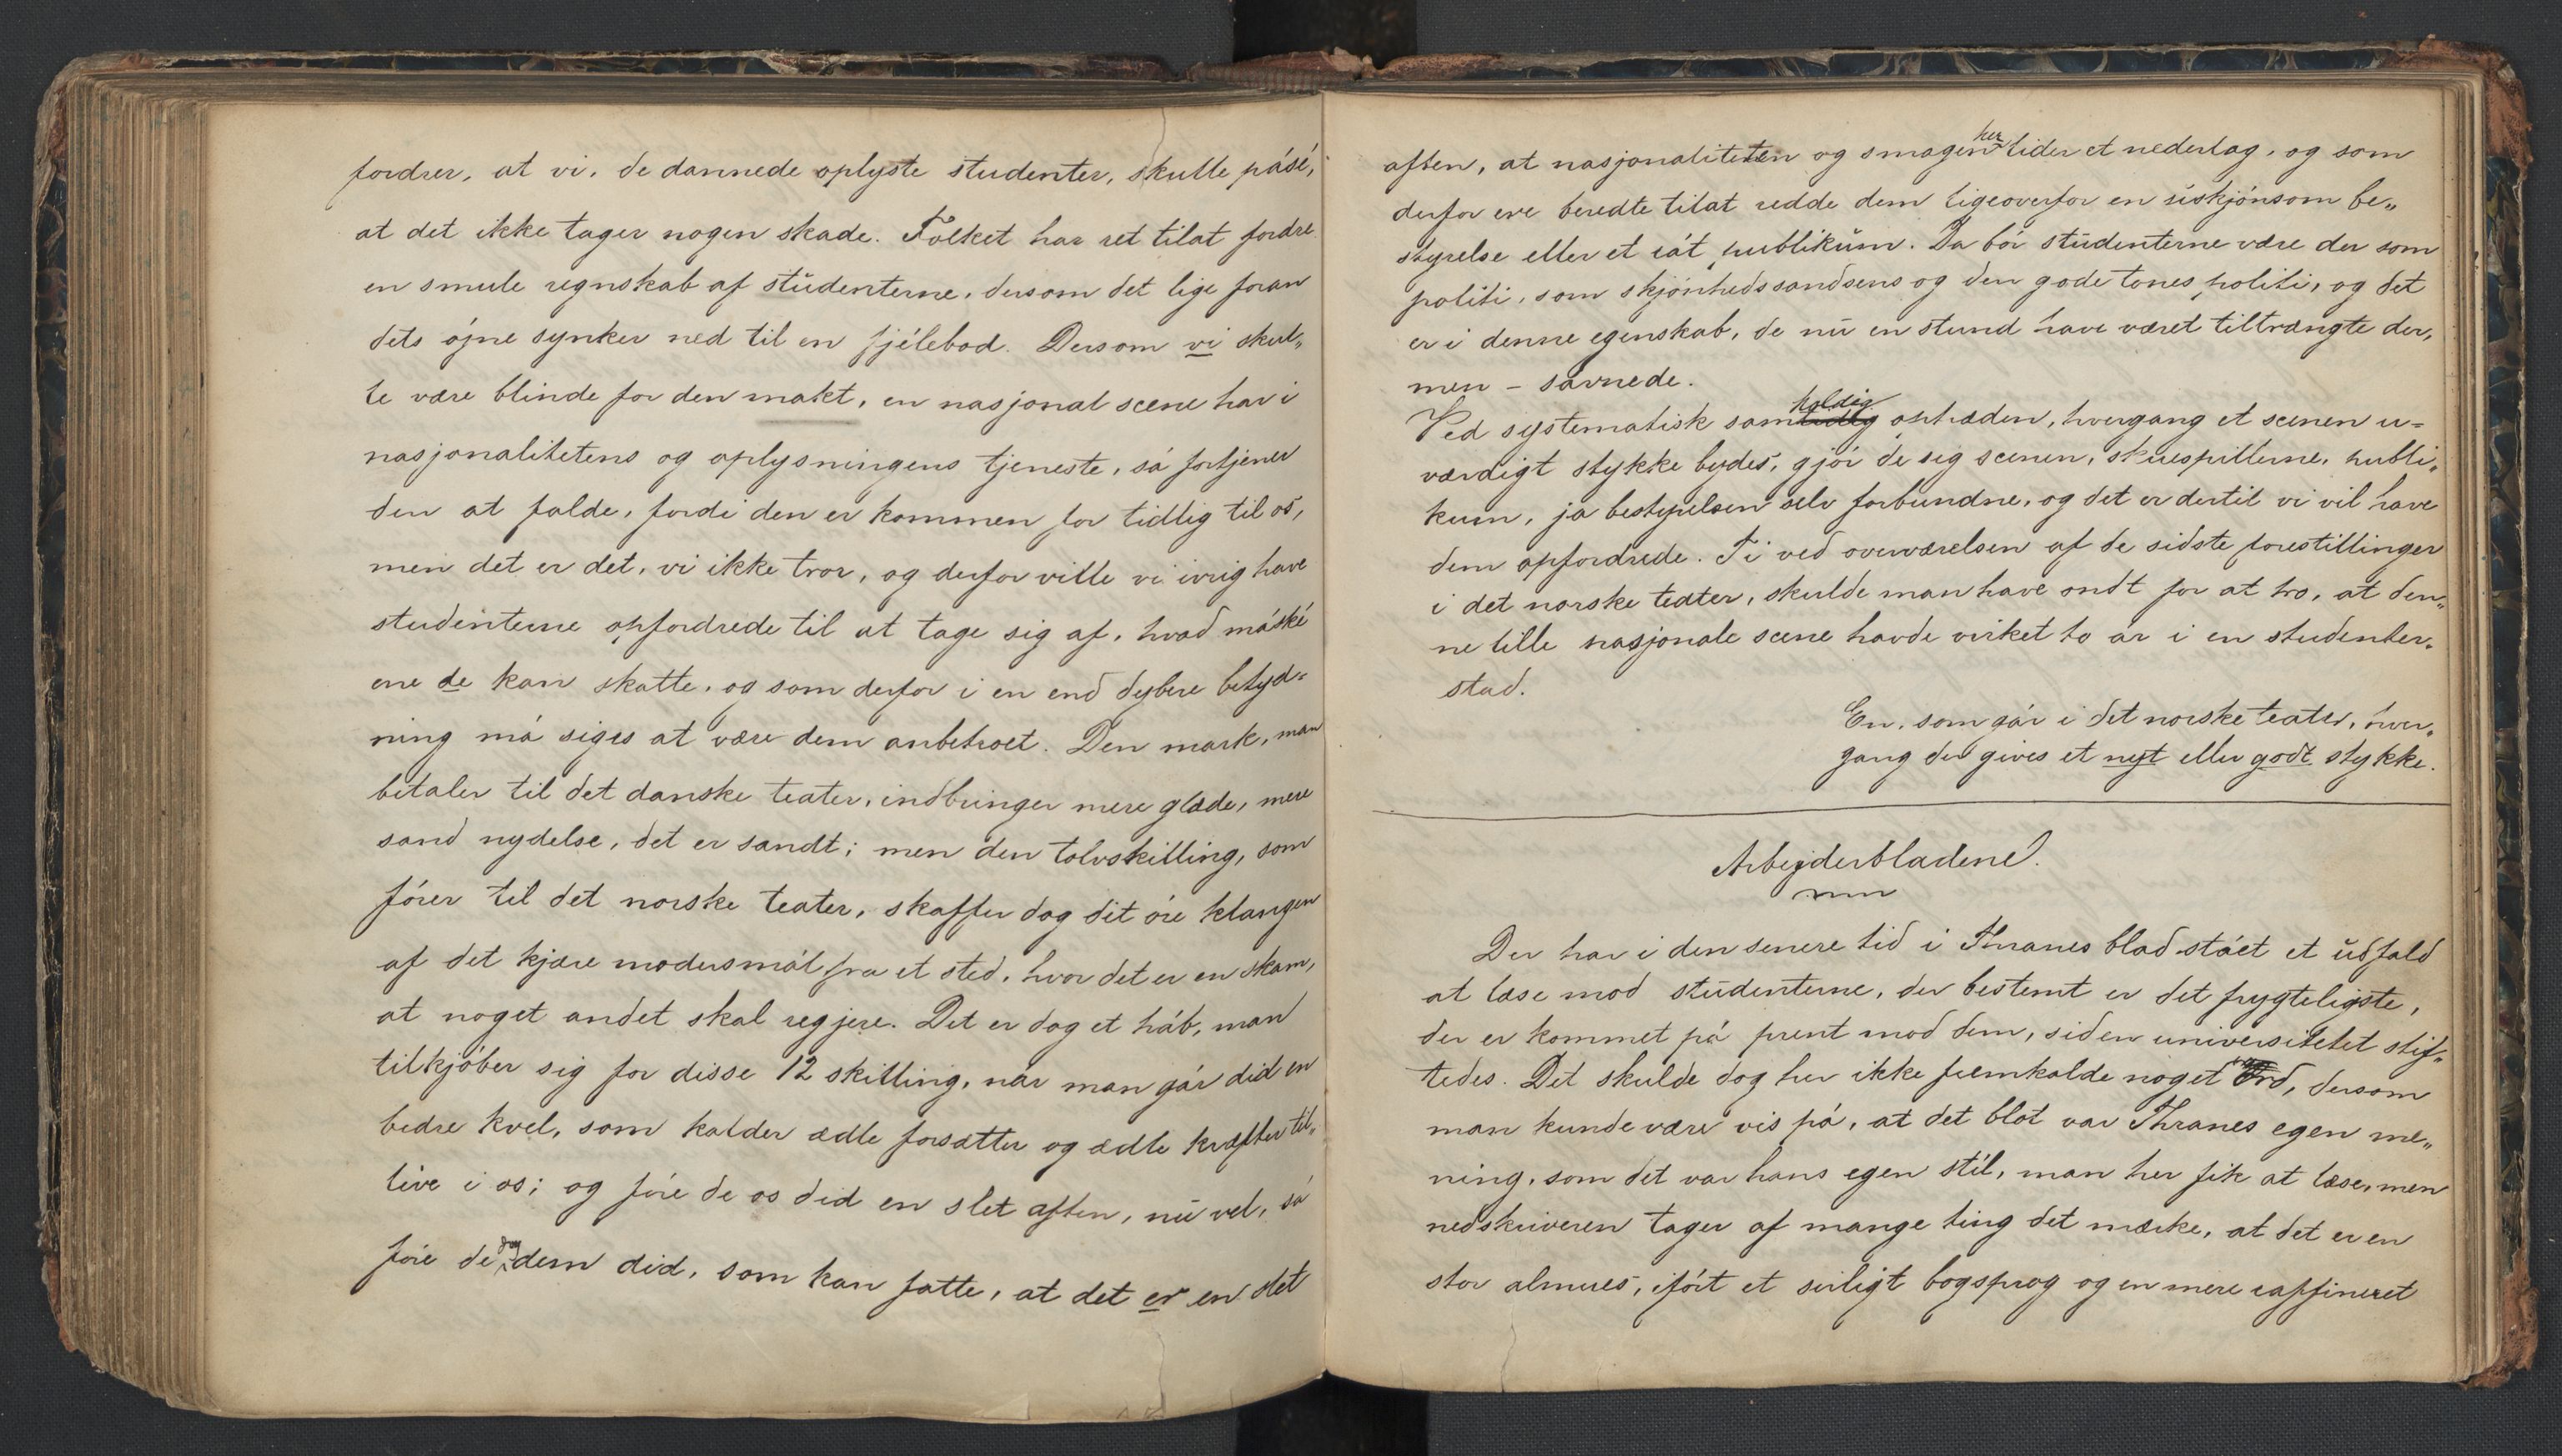 fordrer, at vi, de dannede oplyste studenter, skulle påsé,
at det ikke tager nogen skade. Folket har ret tilat fordre
en smule regnskab af studenterne, dersom det lige foran
dets öjne synker ned til en fjélebod. Dersom vi skul„
le være blinde for den makt, en nasjonal scene har i
nasjonalitetens og oplysningens tjeneste, så fortjener
den at falde, fordi den er kommen for tidlig til os,
men det er det, vi ikke tror, og derfor ville vi ivrig have
studenterne opfordrede til at tage sig af, hvad måské
ene de kan skatte, og som derfor i en end dybere betyd=
ning må siges at være dem anbetroet. Den mark, man
betaler til det danske teater, indbringer mere glæde, mere
sand nydelse, det er sandt; men den tolvskilling, som
förer til det norske teater, skaffer dog dit öre klangen
af det kjære modersmål fra et sted, hvor det er en skam,
at noget andet skal regjere. Det er dog et håb, man
tilkjöber sig for disse 12 skilling, når man går did en
bedre kvel, som kalder ædle forsætter og ædle kræfter til„
live i os; og före de os did en slet aften, nu vel, så
före de dog dem did, som kan fatte, at det er en slet
aften, at nasjonaliteten og smagen her lider et nederlag, og som
derfor ere beredte tilat redde dem ligeoverfor en uskjönsom be„
styrelse eller et råt publikum. Da bör studenterne være der som
politi, som skjönhedssandsens og den gode tones politi, og det
er i denne egenskab, de nu en stund have været tiltrængte der,
men – savnede.
Ved systematisk samholdig optræden, hvergang et scenen u=
værdigt stykke bydes, gjör de sig scenen, skuespillerne, publi„
kum, ja bestyrelsen selv forbundne, og det er dertil vi vil have
dem opfordrede. Ti ved overværelsen af de sidste forestillinger
i det norske teater, skulde man have ondt for at tro, at den„
ne lille nasjonale scene havde virket to år i en studenter„
stad.
En, som går i det norske teater, hver„
gang der gives et nyt eller godt stykke.
Arbejderbladene.
Der har i den senere tid i Thranes blad stået et udfald
at læse mod studenterne, der bestemt er det frygteligste,
der er kommet på prent mod dem, siden universitetet stif„
tedes. Det skulde dog her ikke fremkalde noget ord, dersom
man kunde være vis på, at det blot var Thranes egen me„
ning, som det var hans egen stil, man her fik at læse, men
nedskriveren tager af mange ting det mærke, at det er en
stor almues, ifört et sirligt bogsprog og en mere raffineret